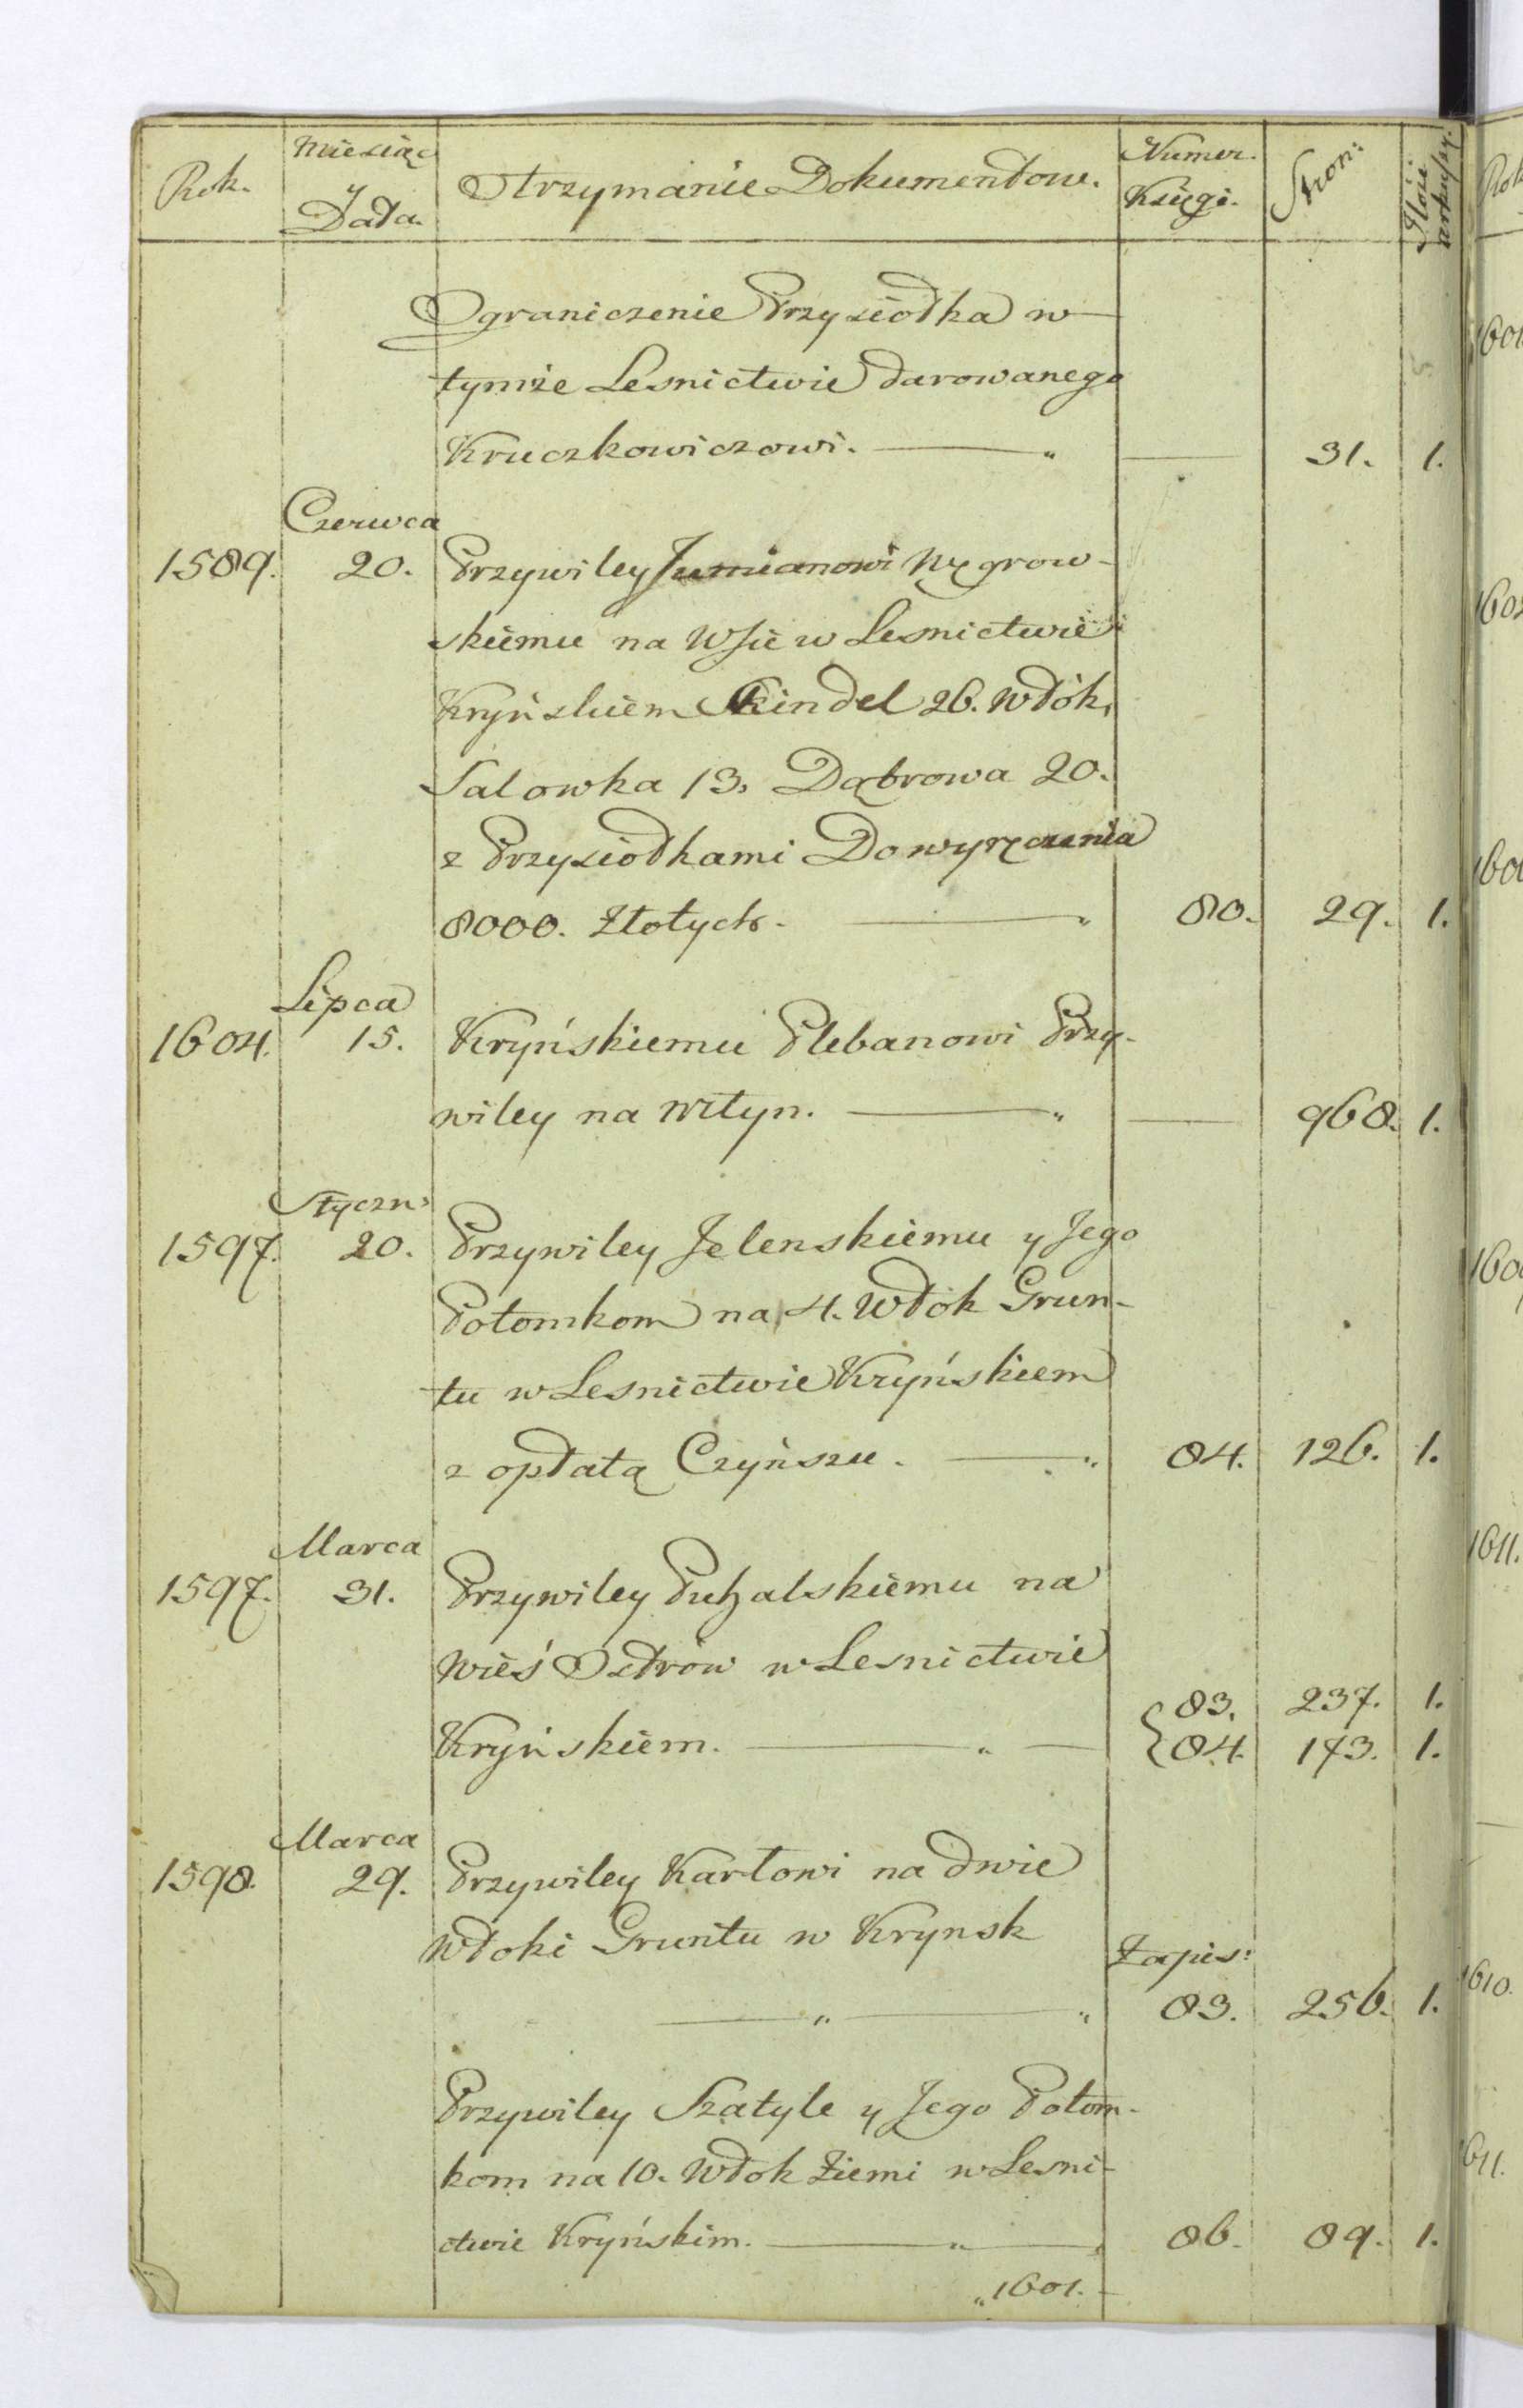 Rok.
Miesiąc
y
Data.
Otrzymanie Dokumentow.
Numer.
Księgi.
Stron:
Ilość
arkuszy.
Ograniczenie Przysiołka w
tymże Lesnictwie darowanego
Kruczkowiczowi. — „ — 31. 1.
Czerwca
1589. 20. Przywiley Jumianowi Węgrow-
skiemu na Wsie w Lesnictwie
Kryńskiem Kindel 26. Włók,
Salowka 13. Dąbrowa 20.
z Przysiołkami Do wyręczenia
8000. Złotych. — „ 80. 29. 1.
Lipca
1604. 15. Kryńskiemu Plebanowi Przy-
wiley na Młyn. — „ — 968. 1.
Styczn:
1597. 20. Przywiley Jelenskiemu y Jego
Potomkom na 4. Włók Grun-
tu w Lesnictwie Kryńskiem
z opłatą Czyńszu. — „ 84. 126. 1.
Marca
1597. 31. Przywiley Puhalskiemu na
Wieś Ostrów w Lesnictwie
83. 237. 1.
Kryńskiem. — „ — 84. 143. 1.
Marca
1598. 29. Przywiley Karłowi na dwie
Włoki Gruntu w Krynsk
Zapis:
— „ — „ 83. 256. 1.
Przywiley Szatyle y Jego Potom-
kom na 10. Włok Ziemi w Lesni-
ctwie Kryńskim. — „ — 86. 89. 1.
„1601.